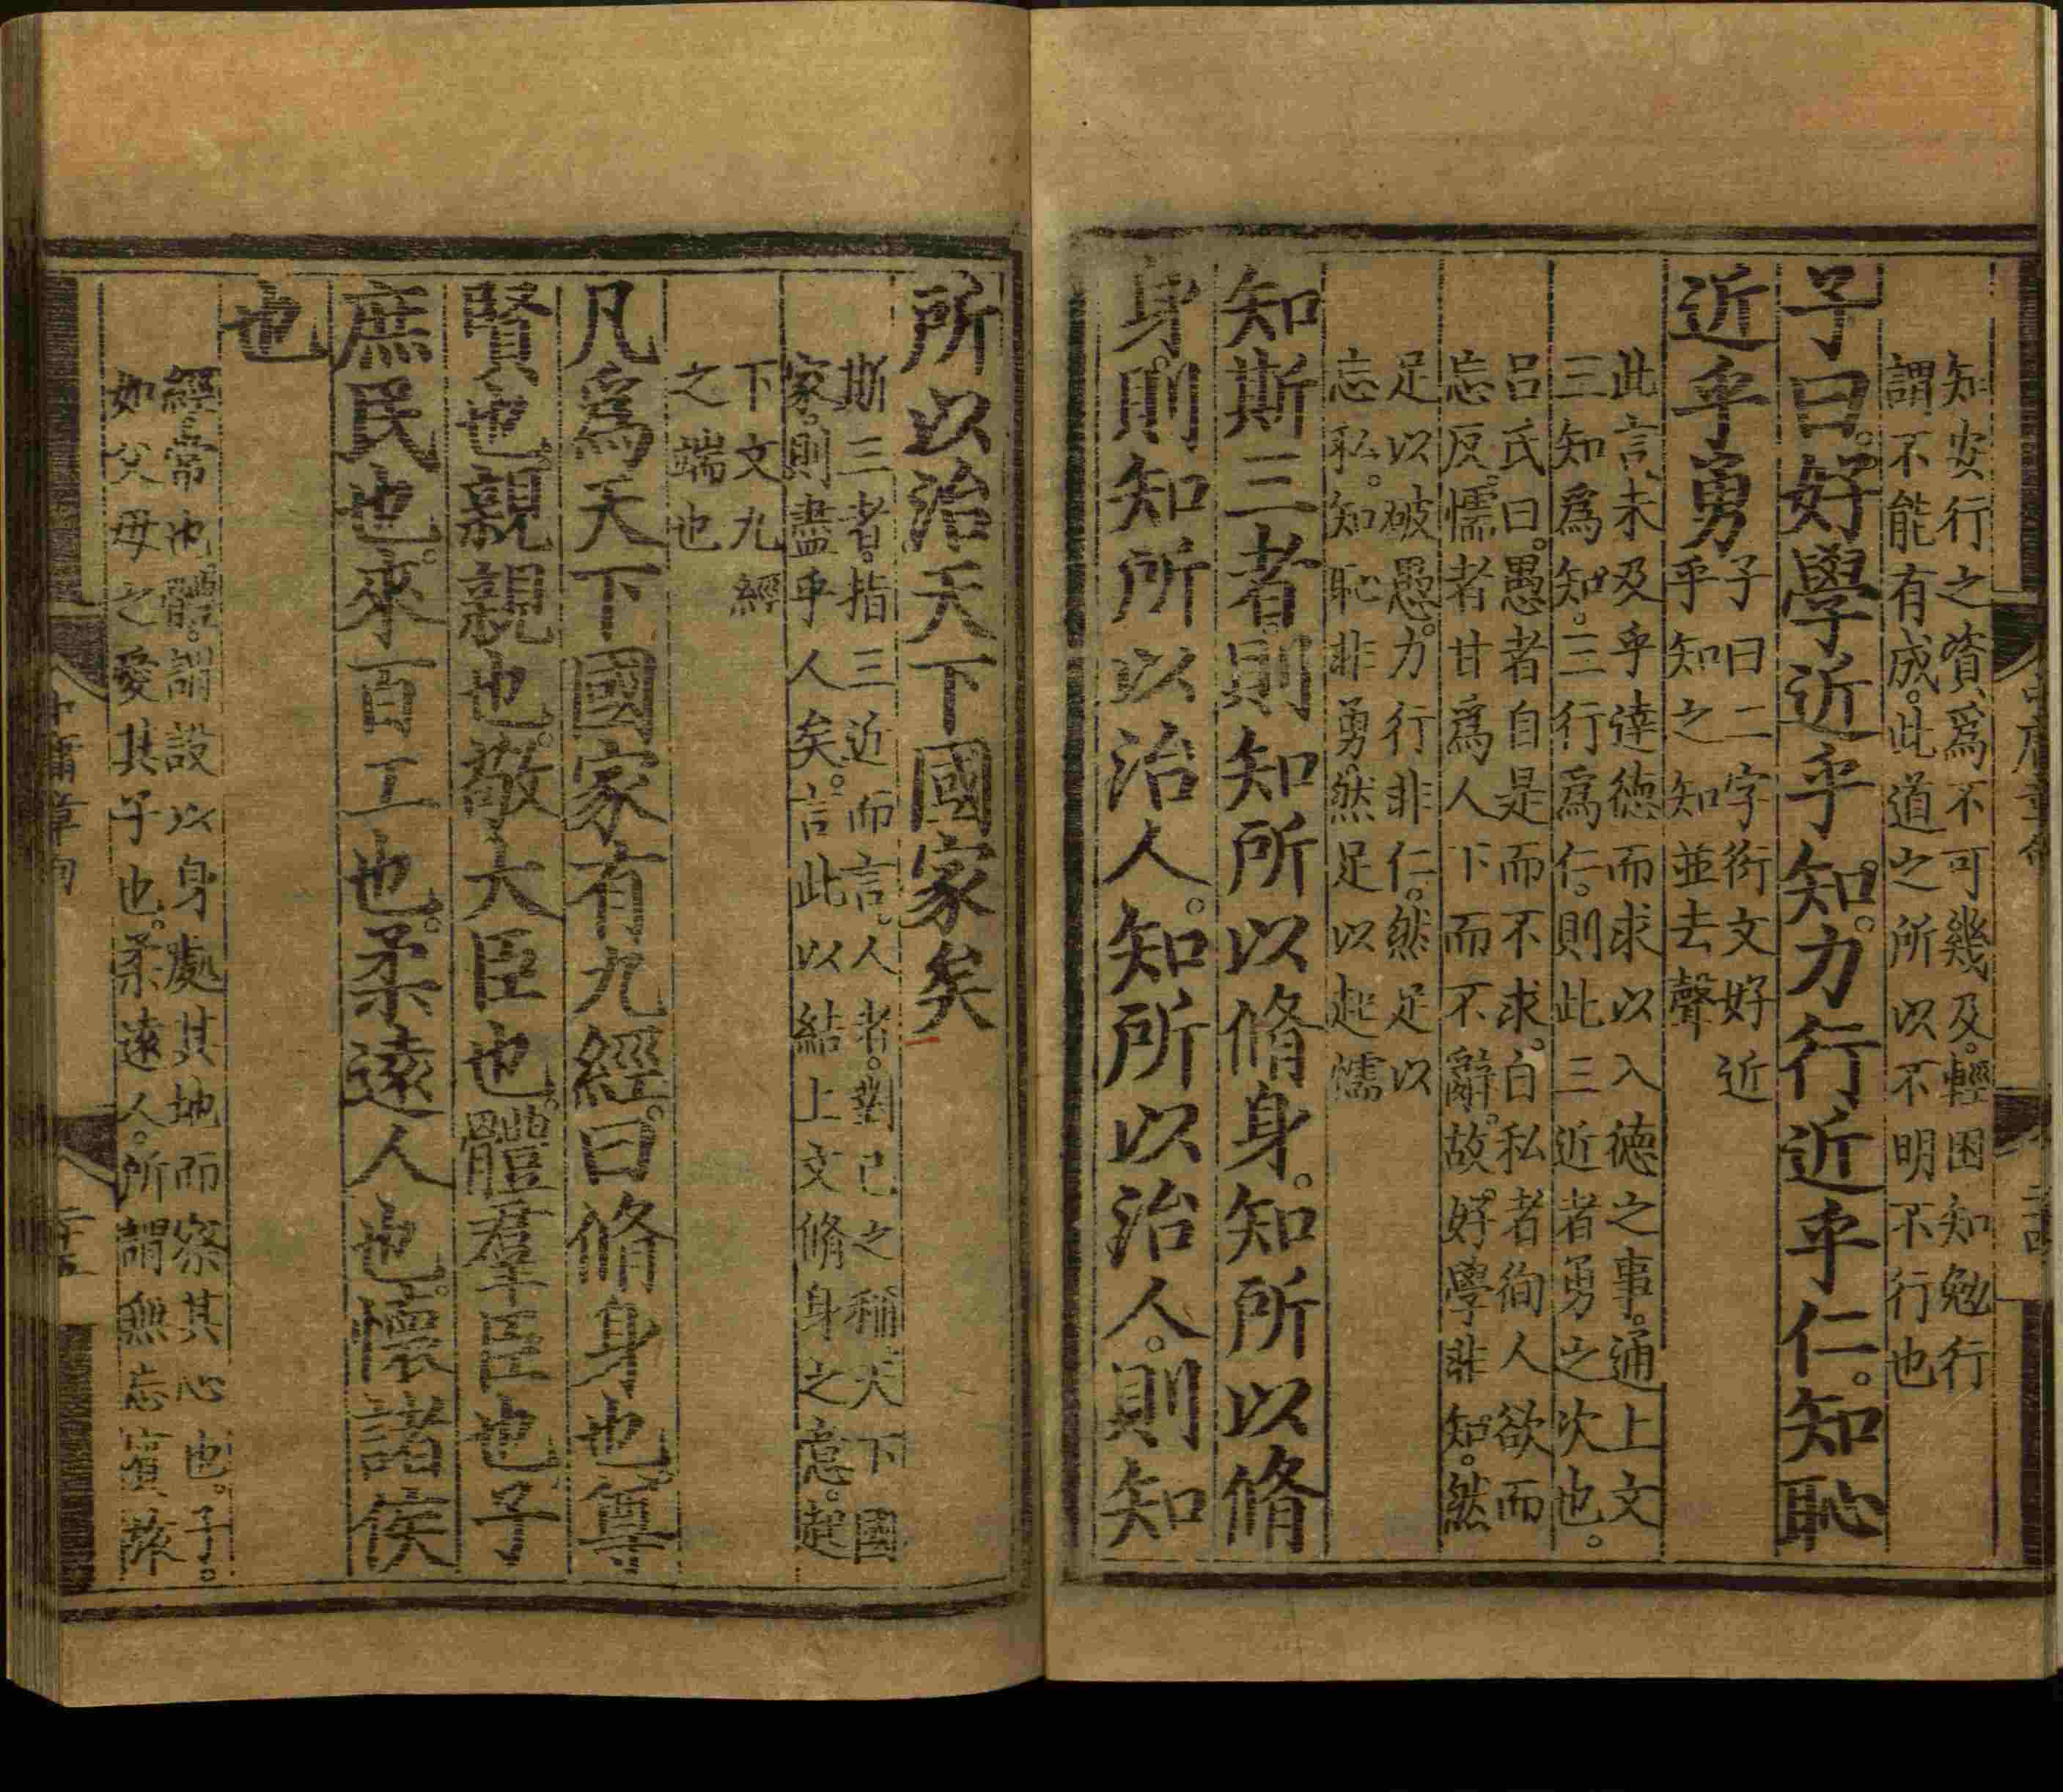 知安行之資爲不可幾及。輕困知勉行
謂不能有成。此道之所以不明不行也
子曰。好學近乎知。力行近乎仁。知恥
近乎勇
子曰二字衍文好近
乎知之知並去聲
此言未及乎達德而求以入德之事。通上文
三知爲知。三行爲仁。則此三近者勇之次也。
呂氏曰。愚者自是而不求。自私者徇人欲而
忘反。懦者甘爲人下而不辭。故好學非知。然
足以破愚。力行非仁。然足以
忘私。知恥非勇。然足以起懦
知斯三者。則知所以脩身。知所以脩
身。則知所以治人。知所以治人。則知
所以治天下國家矣
斯三者。指三近而言。人者。對己之稱天下國
家。則盡乎人矣。言此以結上文脩身之意。起
下文九經
之端也
凡爲天下國家有九經。曰脩身也。尊
賢也。親親也。敬大臣也。體羣臣也。子
庶民也。來百工也。柔遠人也。懷諸侯
也
經。常也。體。謂設以身處其地而察其心也。子。
如父母之愛其子也。柔遠人。所謂無忘賓旅
中庸章句